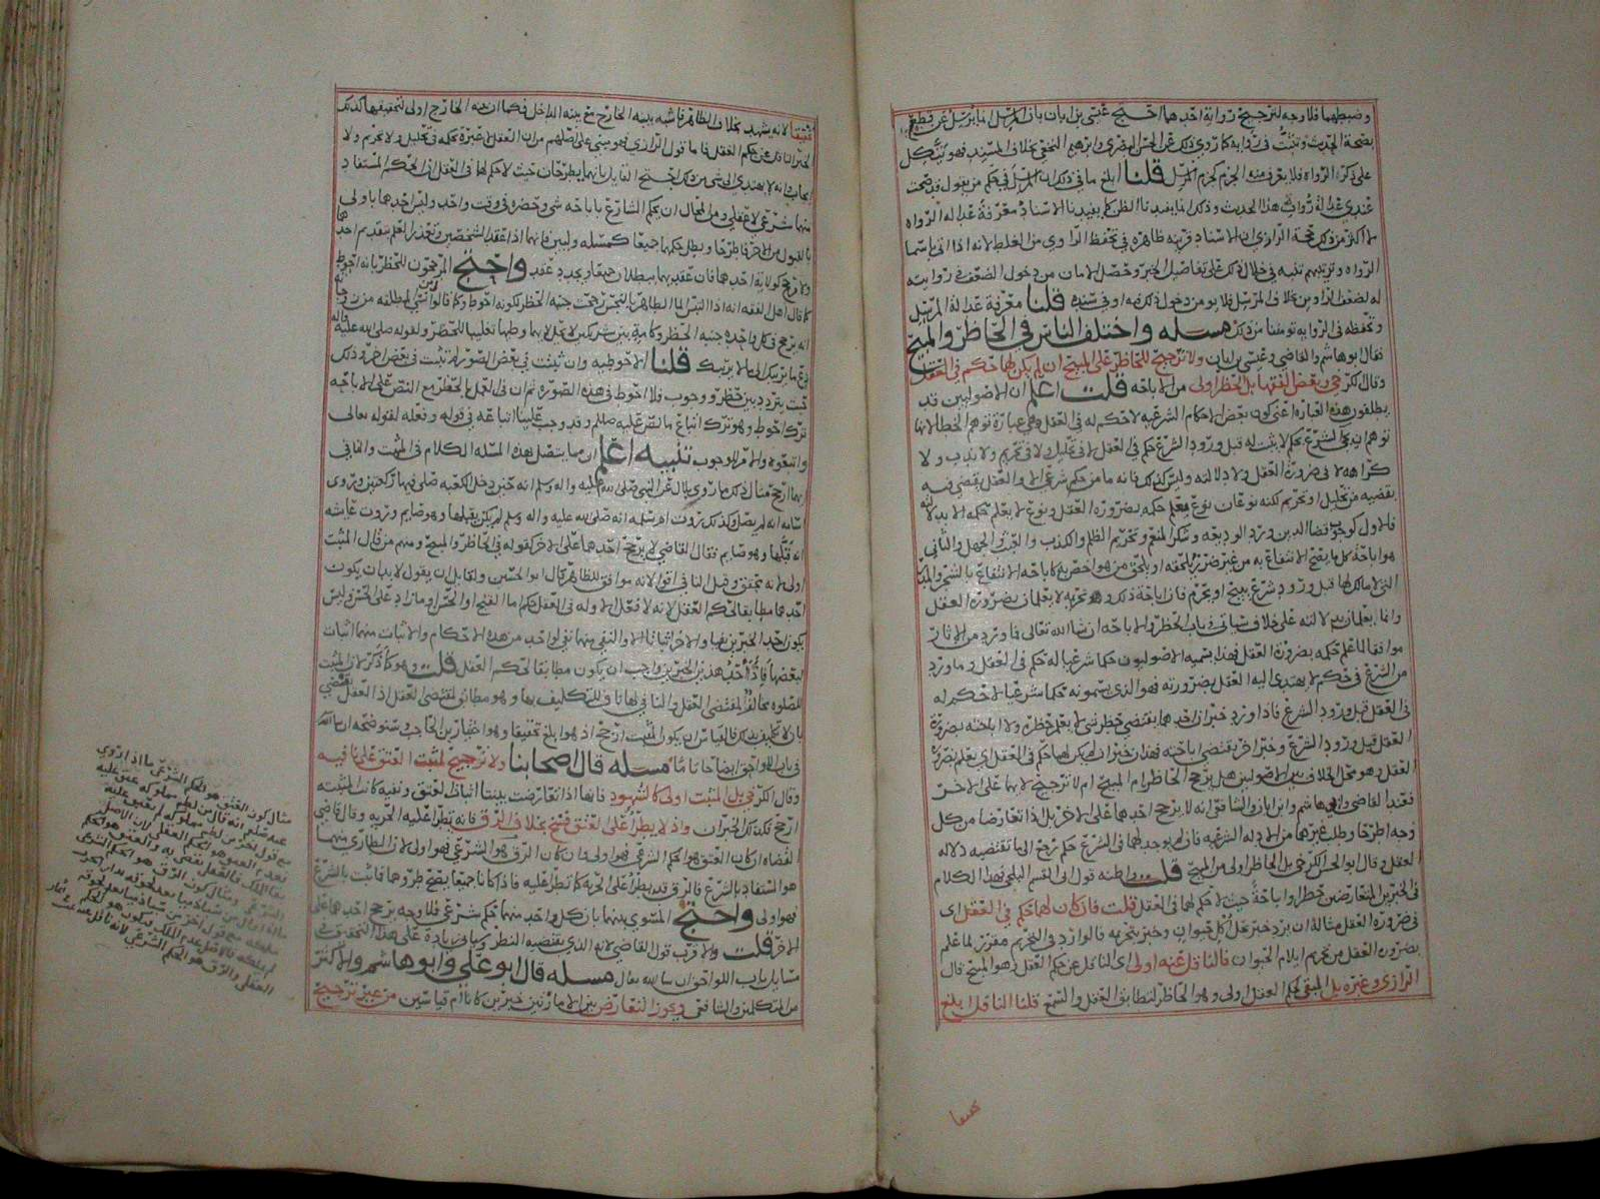 وضبطهما فلا وجه لترجيح رواية احدهما احتج عيسى بن ابان بان المرسل انما يرسل عن قطع
بصحة الحديث وتثبت في روايه كما روي ذلك عن الحسن البصري وابرهيم النخعي بخلاف المسند فهو
على ذكر الرواه فلا يعرف منه الجزم كجزم المرسل قلنا ابلغ ما في ذلك ان المرسل في حكم من يقول قد صحت
عندي عدالة رواة هذا الحديث وذلك انما يفيدنا الظن كما يفيدنا الاسناد معرفة عدالة الرواه
لا اكثر من ذلك حجة الرازي ان الاسناد قرينه ظاهره في تحفظ الراوي من الغلط لانه اذا اتى باسما
الرواه وترتيبهم تنبه في خلال ذلك على تفاصيل الخبر وحصل الامان من دخول الضعف في روايته
قلنا معرفة عدالة المرسل
وتحفظه في الروايه تومننا من ذلك مسله واختلف الناس في الحاظر والمبيح
فقال ابو هاشم والقاضي وعيسى بن ابان ولا ترجيح للحاظر على المبيح ان لم يكن لهما حكم في العقل
وقال الكرخي وبعض الفقها بل الحظر اولى من الاباحه قلت اعلم ان الاصوليين قد
يطلقون هذه العباره اعني كون بعض الاحكام الشرعيه لا حكم له في العقل وهي عبارة توهم الخطا لانها
توهم ان الشرع بحكم لا يثبت له قبل ورود الشرع حكم في العقل لا في تحليل ولا في تحريم ولا ندب ولا
كراهه لا في ضرورة العقل ولا دلالته وليس كذلك فانه ما من حكم شرعي الا والعقل يقضي فيه
بقضيه من تحليل او تحريم لكنه نوعان نوع يعلم حكمه بضرورة العقل ونوع لا يعلم حكمه الا بدلالته
فالاول كوجوب قضا الدين ورد الوديعه وشكر المنعم وتحريم الظلم والكذب والعبث والجهل والثاني
هو اباحة كل ما يصح الانتفاع به من غير ضرر
التي لا مالك لها قبل ورود شرع يبيح او يحرم فان اباحة ذلك وتحريمه لا يعلمان بضرورة العقل
وانما يعلمان بدلالته على خلاف سياتي في باب الحظر والاباحه ان شا الله تعالى فما ورد من الاثار
موافقا لما علم حكمه بضرورة العقل فهذا يسميه الاصوليون حكما شرعيا له حكم في العقل وما ورد
من الشرع في حكم لا يهتدي اليه العقل بضرورته فهو الذي يسمونه حكما شرعيا لا حكم له
في العقل قبل ورود الشرع فاذا ورد خبران احدهما يقتضي حظر شي لا يعلم حظره ولا اباحته بضرورة
العقل قبل ورود الشرع وخبر اخر يقتضي اباحته فهذان خبران لم يكن لهما حكم في العقل اي يعلم بضرورة
العقل وهو محل الخلاف بين الاصوليين هل يرجح الحاظر ام المبيح ام لا ترجيح لايهما على الاخر
فعند القاضي وابي هاشم وابن ابان والشافعي انه لا يرجح احدهما على الاخر بل اذا تعارضا من كل
وجه اطرحا وطلب غيرهما من الادله الشرعيه فان لم يوجد لهما في الشرع حكم رجع الى ما تقتضيه دلاله
العقل وقال ابو الحسن الكرخي بل الحاظر اولى من المبيح قلت واظنه قول ابي القسم البلخي فهذا الكلام
في الخبرين المتعارضين حظرا واباحة حيث لا حكم لهما في العقل قلت فان كان لهما حكم في العقل اي
في ضرورة العقل مثاله ان يرد خبر بحل اكل حيوان وخبر بتحريمه فالوارد في التحريم مقرر لما علم
بضرورة العقل من تحريم ايلام الحيوان فالناقل عنه اولى اي الناقل عن حكم العقل وهو المبيح قال
الرازي وغيره بل المبقي لحكم العقل اولى وهو الحاظر لتطابق العقل والسمع قلنا الناقل ابلغ
تحقيقا
تحقيقا لانه يشهد بخلاف الظاهر فاشبه بينه الخارج مع بينه الداخل فكما ان بينه الخارج اولى لتحقيقها كذلك
الخبر الناقل عن حكم العقل فاما قول الرازي فهو مبني على اصلهم من ان العقل لا عبرة بحكمه في تحليل ولا تحريم ولا
ايجاب وانه لا يهتدي الى شي من ذلك احتج القايل بانهما يطرحان حيث لا حكم لهما في العقل لان الحكم المستفاد
منهما شرعي لا عقلي ومن المحال ان يحكم الشارع باباحه شي وحضره في وقت واحد وليس احدهما باولى
بالقبول من الاخر فاطرحا وبطل حكمهما جميعا كمسله وليين فانهما اذا عقدا لشخصين وتعذر العلم بتقدم احدهما
ولا ترجح لولاية احدهما فان عقديهما يبطلان جميعا ويجدد عقد واحتج المرجحون للحظر بانه احوط
كما قال اهل الفقه انه اذا التبس الما الطاهر بالنجس رجحت جنبة الحظر لكونه احوط وكما قالوا
قلنا الاحوطيه وان ثبتت في بعض الصور لم تثبت في بعض اخر وذلك
حيث يتردد بين حظر ووجوب فلا احوط في هذه الصوره ثم ان في العمل بالحظر مع النص على الاباحه
ترك احوط وهو ترك اتباع ما نص عليه صلعم وقد وجب علينا اتباعه في قوله وفعله لقوله تعالى
واتبعوه والامر للوجوب تنبيه اعلم ان مما يتصل بهذه المسله الكلام في المثبت والنافي
ايهما ارجح مثال ذلك ما روي بلال عن النبي صلى الله عليه واله وسلم انه حين دخل الكعبه صلى فيها ركعتين وروى
اسامه انه لم يصل وكذلك روت ام سلمه انه صلى الله عليه واله وسلم لم يكن يقبلها وهو صايم وروت عايشه
انه قبلها وهو صايم فقال القاضي لا يرجح احدهما على الاخر كقوله في الحاظر والمبيح ومنهم من قال المثبت
اولى لانه تحقق وقيل النافي اقوى لانه موافق للظاهر قال ابو الحسين ولقايل ان يقول لا بد ان يكون
احدهما مطابقا لحكم العقل لانه لا فعل الا وله في العقل حكم اما القبح او الحسن او ما زاد على الحسن وليس
يكون احد الخبرين نفيا والاخر اثباتا الا والنفي منهما نفي لواحد من هذه الاحكام والاثبات منهما اثبات
لبعضها فاذا احد هذين الخبرين واجب ان يكون مطابقا لحكم العقل قلت وهو كما ذكر لان المثبت
للصلوه مخالف لمقتضى العقل والنافي لها ناف للتكليف بها وهو مطابق لمقتضى العقل اذ العقل يقتضي
بان لا تكليف بذلك فالقياس ان يكون المثبت ارجح اذ هو ابلغ تحقيقا وهو اختيار بن الحاجب وسنوضحه ان شا الله
في باب اللواحق ايضاحا تاما مسله قال اصحابنا ولا ترجيح لمثبت العتق على نافيه
وقال الكرخي بل المثبت اولى كالشهود فانها اذا تعارضت بينتا اثبات العتق ونفيه كانت المثبته
ارجح فكذلك الخبران واذ لا يطرا على العتق فسخ بخلاف الرق فانه يطرا عليه الحريه وقال قاضي
القضاه ان كان العتق هو الحكم الشرعي فهو اولى وان كان الرق هو الشرعي فهو اولى لان الطاري منهما
هو المستفاد بالشرع فالرق قد يطرا على الحريه كما تطرا عليه فاذا كانا جميعا يصح طروهما فما ثبت بالشرع
فهو اولى واحتج المسوي بينهما بان كل واحد منهما حكم شرعي فلا وجه يرجح احدهما على
الاخر قلت والاقرب قول القاضي لانه الذي يقتضيه النظر وسياتي زيادة على هذا التحقيق في
مسايل باب اللواحق ان شا الله تعالى مسله قال ابو علي وابو هاشم والاكثر
من المتكلمين والشافعي ويجوز التعارض بين الامارتين خبرين كانا ام قياسين من غير ترجيح
مثال كون العتق هو الحكم الشرعي ما اذا روي
عنه صلعم انه قال من لطم مملوكه عتق عليه
مع قول اخر من لطم مملوكه لم يعتق عليه
فعدم العتق هو الحكم العقلي لان الاصل
بقا الملك فالعقل يقضي به والعتق هو الحكم
الشرعي ومثال كون الرق هو الحكم الشرعي
العقلي والرق هو الحكم الشرعي لانه ناقل عنه